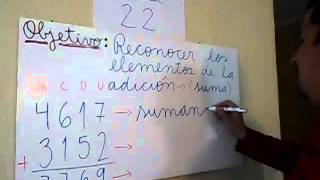 22
Objetivo: Reconocer los
elementos de la
adición → (suma)
Um C D U
4617 → suman
+ 3152 →
7769 →